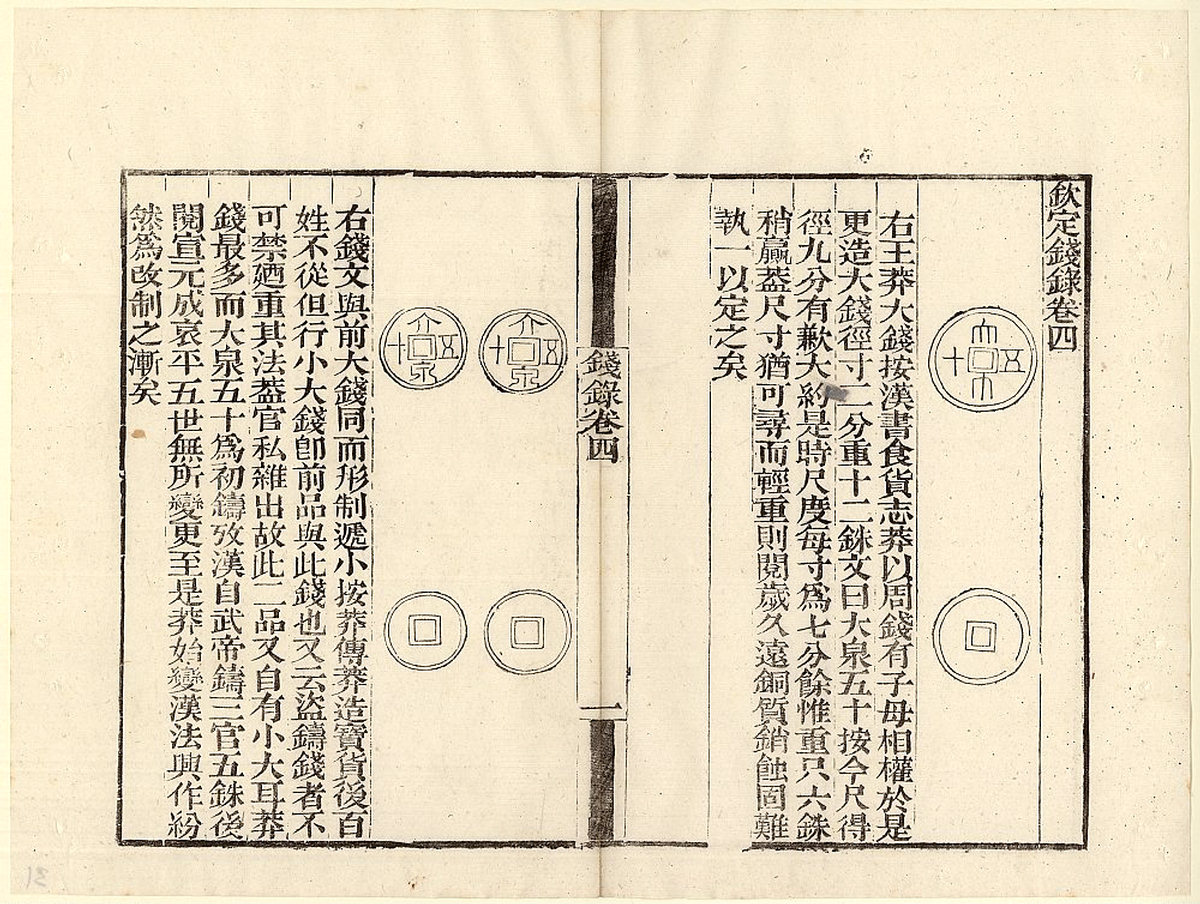 欽定錢錄卷四
大泉五十
右王莽大錢按漢書食貨志莽以周錢有子母相權於是
更造大錢徑寸二分重十二銖文曰大泉五十按今尺得
徑九分有歉大約是時尺度每寸為七分餘惟重只六銖
稍贏葢尺寸猶可尋而輕重則閱歲久遠銅質銷蝕固難
執一以定之矣
錢錄卷四
一
大泉五十
大泉五十
右錢文與前大錢同而形制遞小按莽傳莽造寶貨後百
姓不從但行小大錢卽前品與此錢也又云盜鑄錢者不
可禁廼重其法葢官私雜出故此二品又自有小大耳莽
錢最多而大泉五十為初鑄攷漢自武帝鑄三官五銖後
閱宣元成哀平五世無所變更至是莽始變漢法興作紛
然為改制之漸矣
31